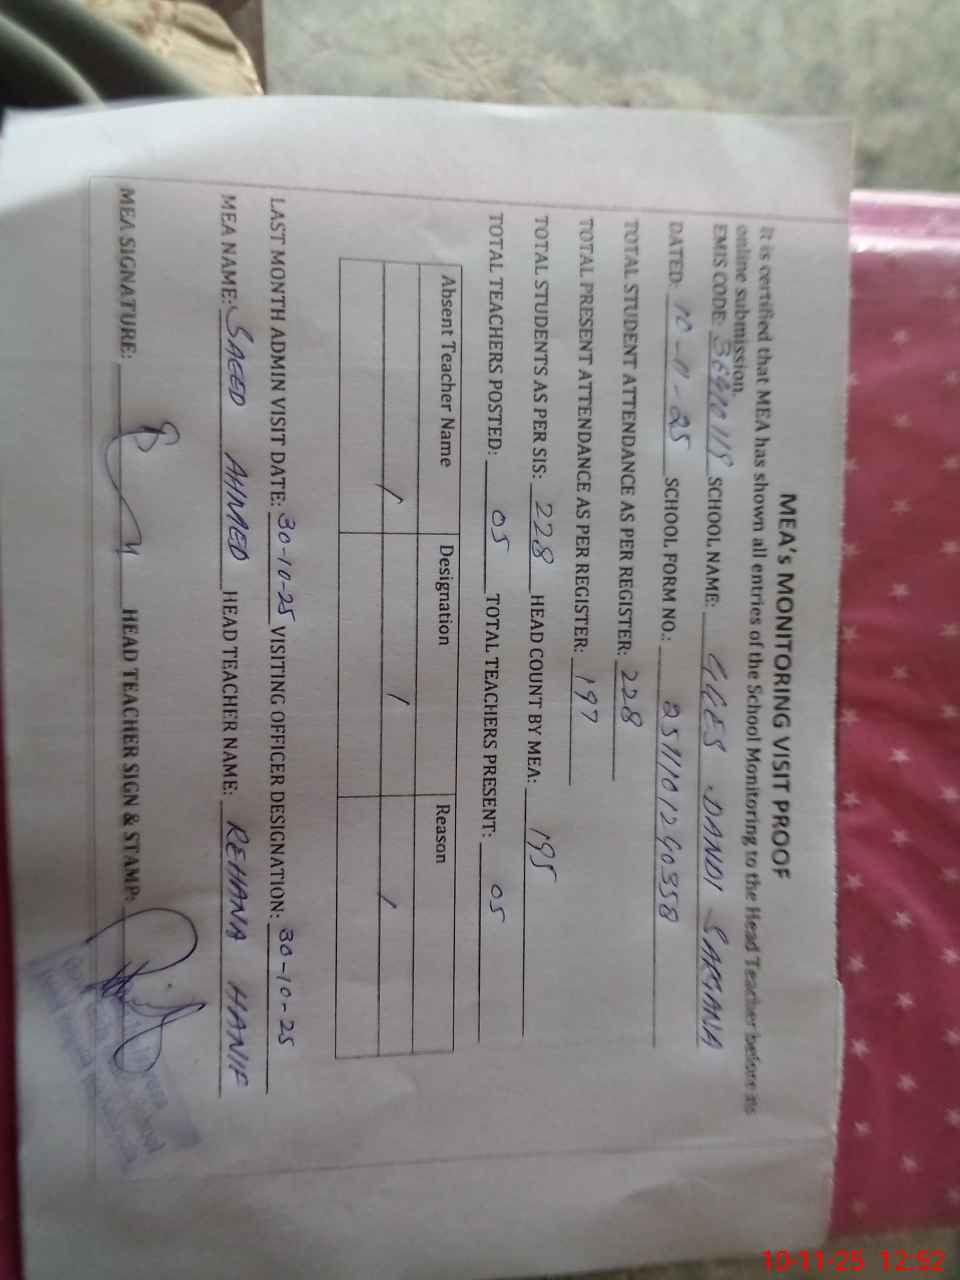 MEA's MONITORING VISIT PROOF
It is certified that MEA has shown all entries of the School Monitoring to the Head Teacher before its
online submission.
EMIS CODE: SCHOOL NAME: GGES DANDI SARGANA
DATED: 10-11-25 SCHOOL FORM NO.:
TOTAL STUDENT ATTENDANCE AS PER REGISTER: 228
TOTAL PRESENT ATTENDANCE AS PER REGISTER: 197
TOTAL STUDENTS AS PER SIS: 228 HEAD COUNT BY MEA: 195
TOTAL TEACHERS POSTED: 05 TOTAL TEACHERS PRESENT: 05
Absent Teacher Name Designation Reason
/ / /
LAST MONTH ADMIN VISIT DATE: 30-10-25 VISITING OFFICER DESIGNATION: 30-10-25
MEA NAME: SAEED AHMED HEAD TEACHER NAME: REHANA HANIF
MEA SIGNATURE: HEAD TEACHER SIGN & STAMP:
10-11-25 12:52